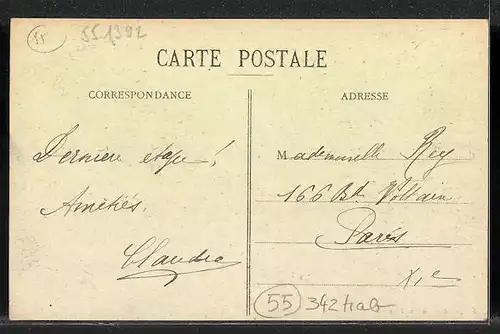 55 551392
CARTE POSTALE
CORRESPONDANCE
ADRESSE
Dernière étape!
Amitiés.
Claudia
Mademoiselle Rey
166 Bd Voltaire
Paris
XIe
55 342